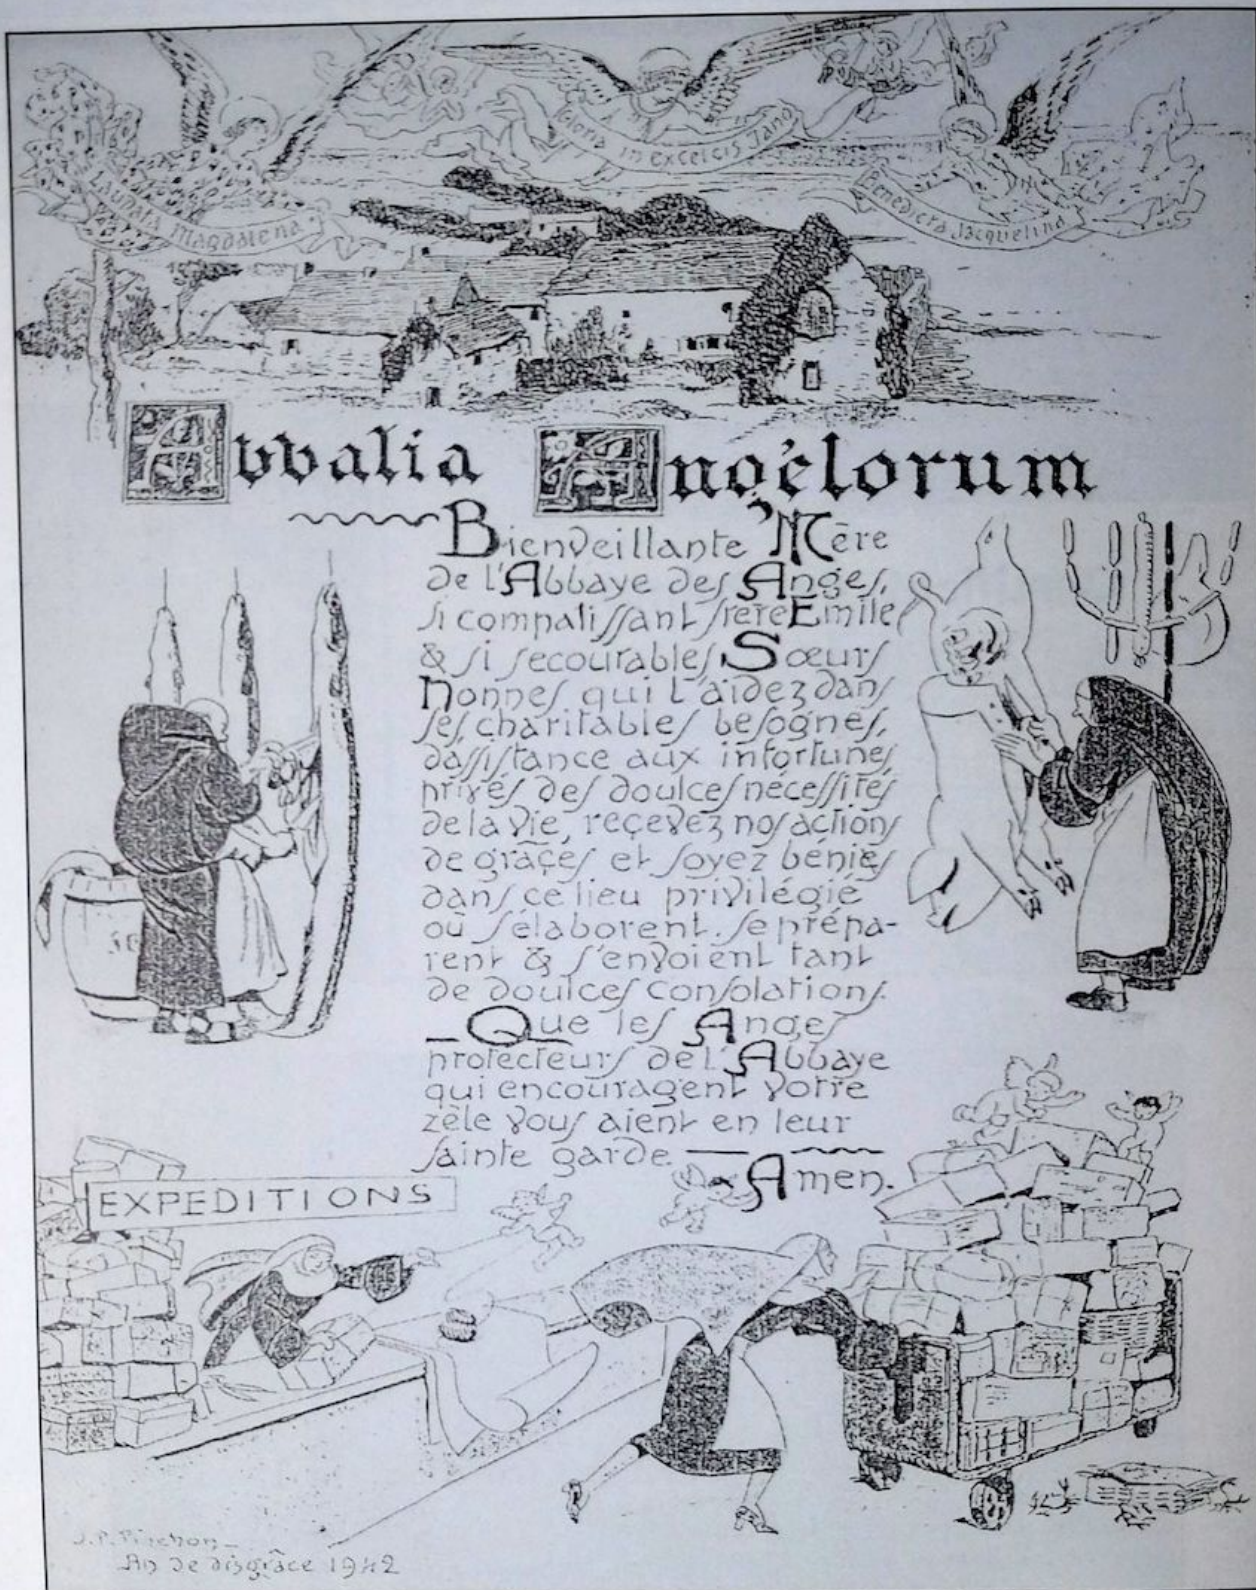 Gloria in excelcis Jano
Laudata Magdalena
Benedicta Jacquelina
Abbatia Angelorum
Bienveillante Mère
de l'Abbaye des Anges,
si compatissant frère Emile
& si secourables Sœurs
Nonnes qui l'aidez dans
ses charitables besognes,
d'assistance aux infortunés
privés des doulces nécessités
de la vie, reçevez nos actions
de grâçes et soyez bénies
dans ce lieu privilégié
où s'élaborent, se prépa-
rent & s'envoient tant
de doulces consolations.
_Que les Anges
protecteurs de l'Abbaye
qui encouragent votre
zèle vous aient en leur
sainte garde. —
Amen.
EXPEDITIONS
J.P. Pinchon_
An de disgrâce 1942